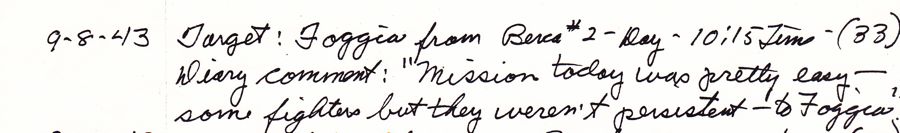 9-8-43 Target: Foggia from Berca #2 - Day - 10:15 Time - (33)
Diary comment: "Mission today was pretty easy —
some fighters but they weren't persistent — to Foggia".